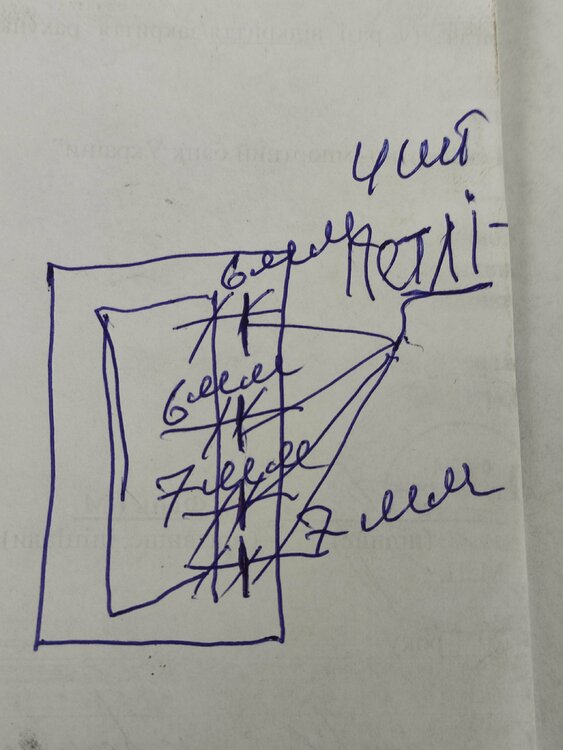 4 шт
петлі
6мм
6мм
7мм
7мм